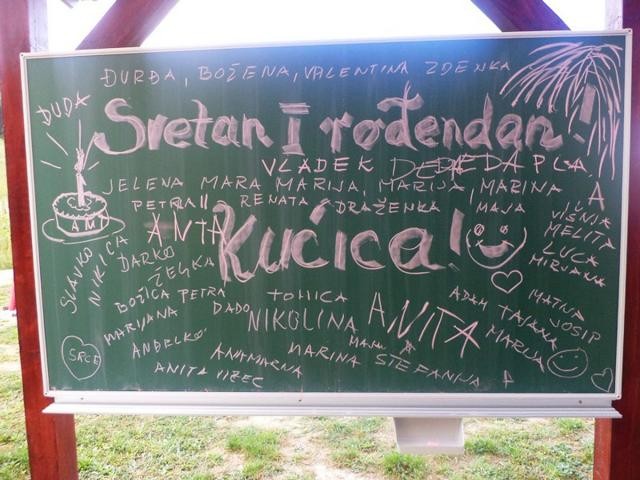 ĐURĐA, BOŽENA, VALENTINA ZDENKA
ĐUĐA
Sretan I rođendan!
VLADEK
JELENA MARA MARIJA, MARIJA, MARINA
PETRA II RENATA DRAŽENKA MAJA
VIŠNJA
MELITA
LUCA
MIRJANA
ANTA
Kućica!
SLAVKO
NIKICA
DARKO
ŽELJKA
BOŽICA PETRA
DADO
TOMICA
NIKOLINA
ANITA
ADAM TAJANA
MATIJA
JOSIP
MARIJA
MARIJANA
ANĐELKO
SRCE
ANAMARIJA
MARINA
STEFANIJA
ANITA VIZEC